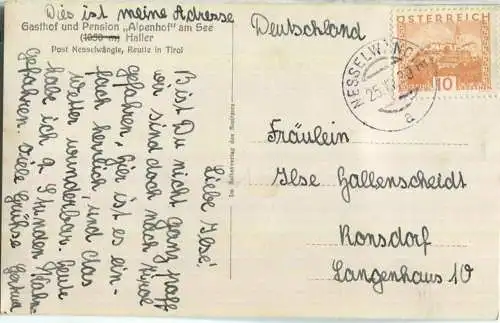 Dies ist meine Adresse
Gasthof und Pension „Alpenhof" am See
(1050 m) Haller
Post Nesselwängle, Reutte in Tirol
Liebe Ilse!
Bist Du nicht ganz paff
wir sind doch nach Tirol
gefahren. Hier ist es ein-
fach herrlich, und das
Wetter wunderbar. Heute
habe ich 2 Stunden Kahn
gefahren. Viele Grüße
Gertrud
Im Selbstverlag des Besitzers
Deutschland
ÖSTERREICH
10
NESSELWÄNGLE
25.
a
Fräulein
Ilse Hallenscheidt
Ronsdorf
Langenhaus 10